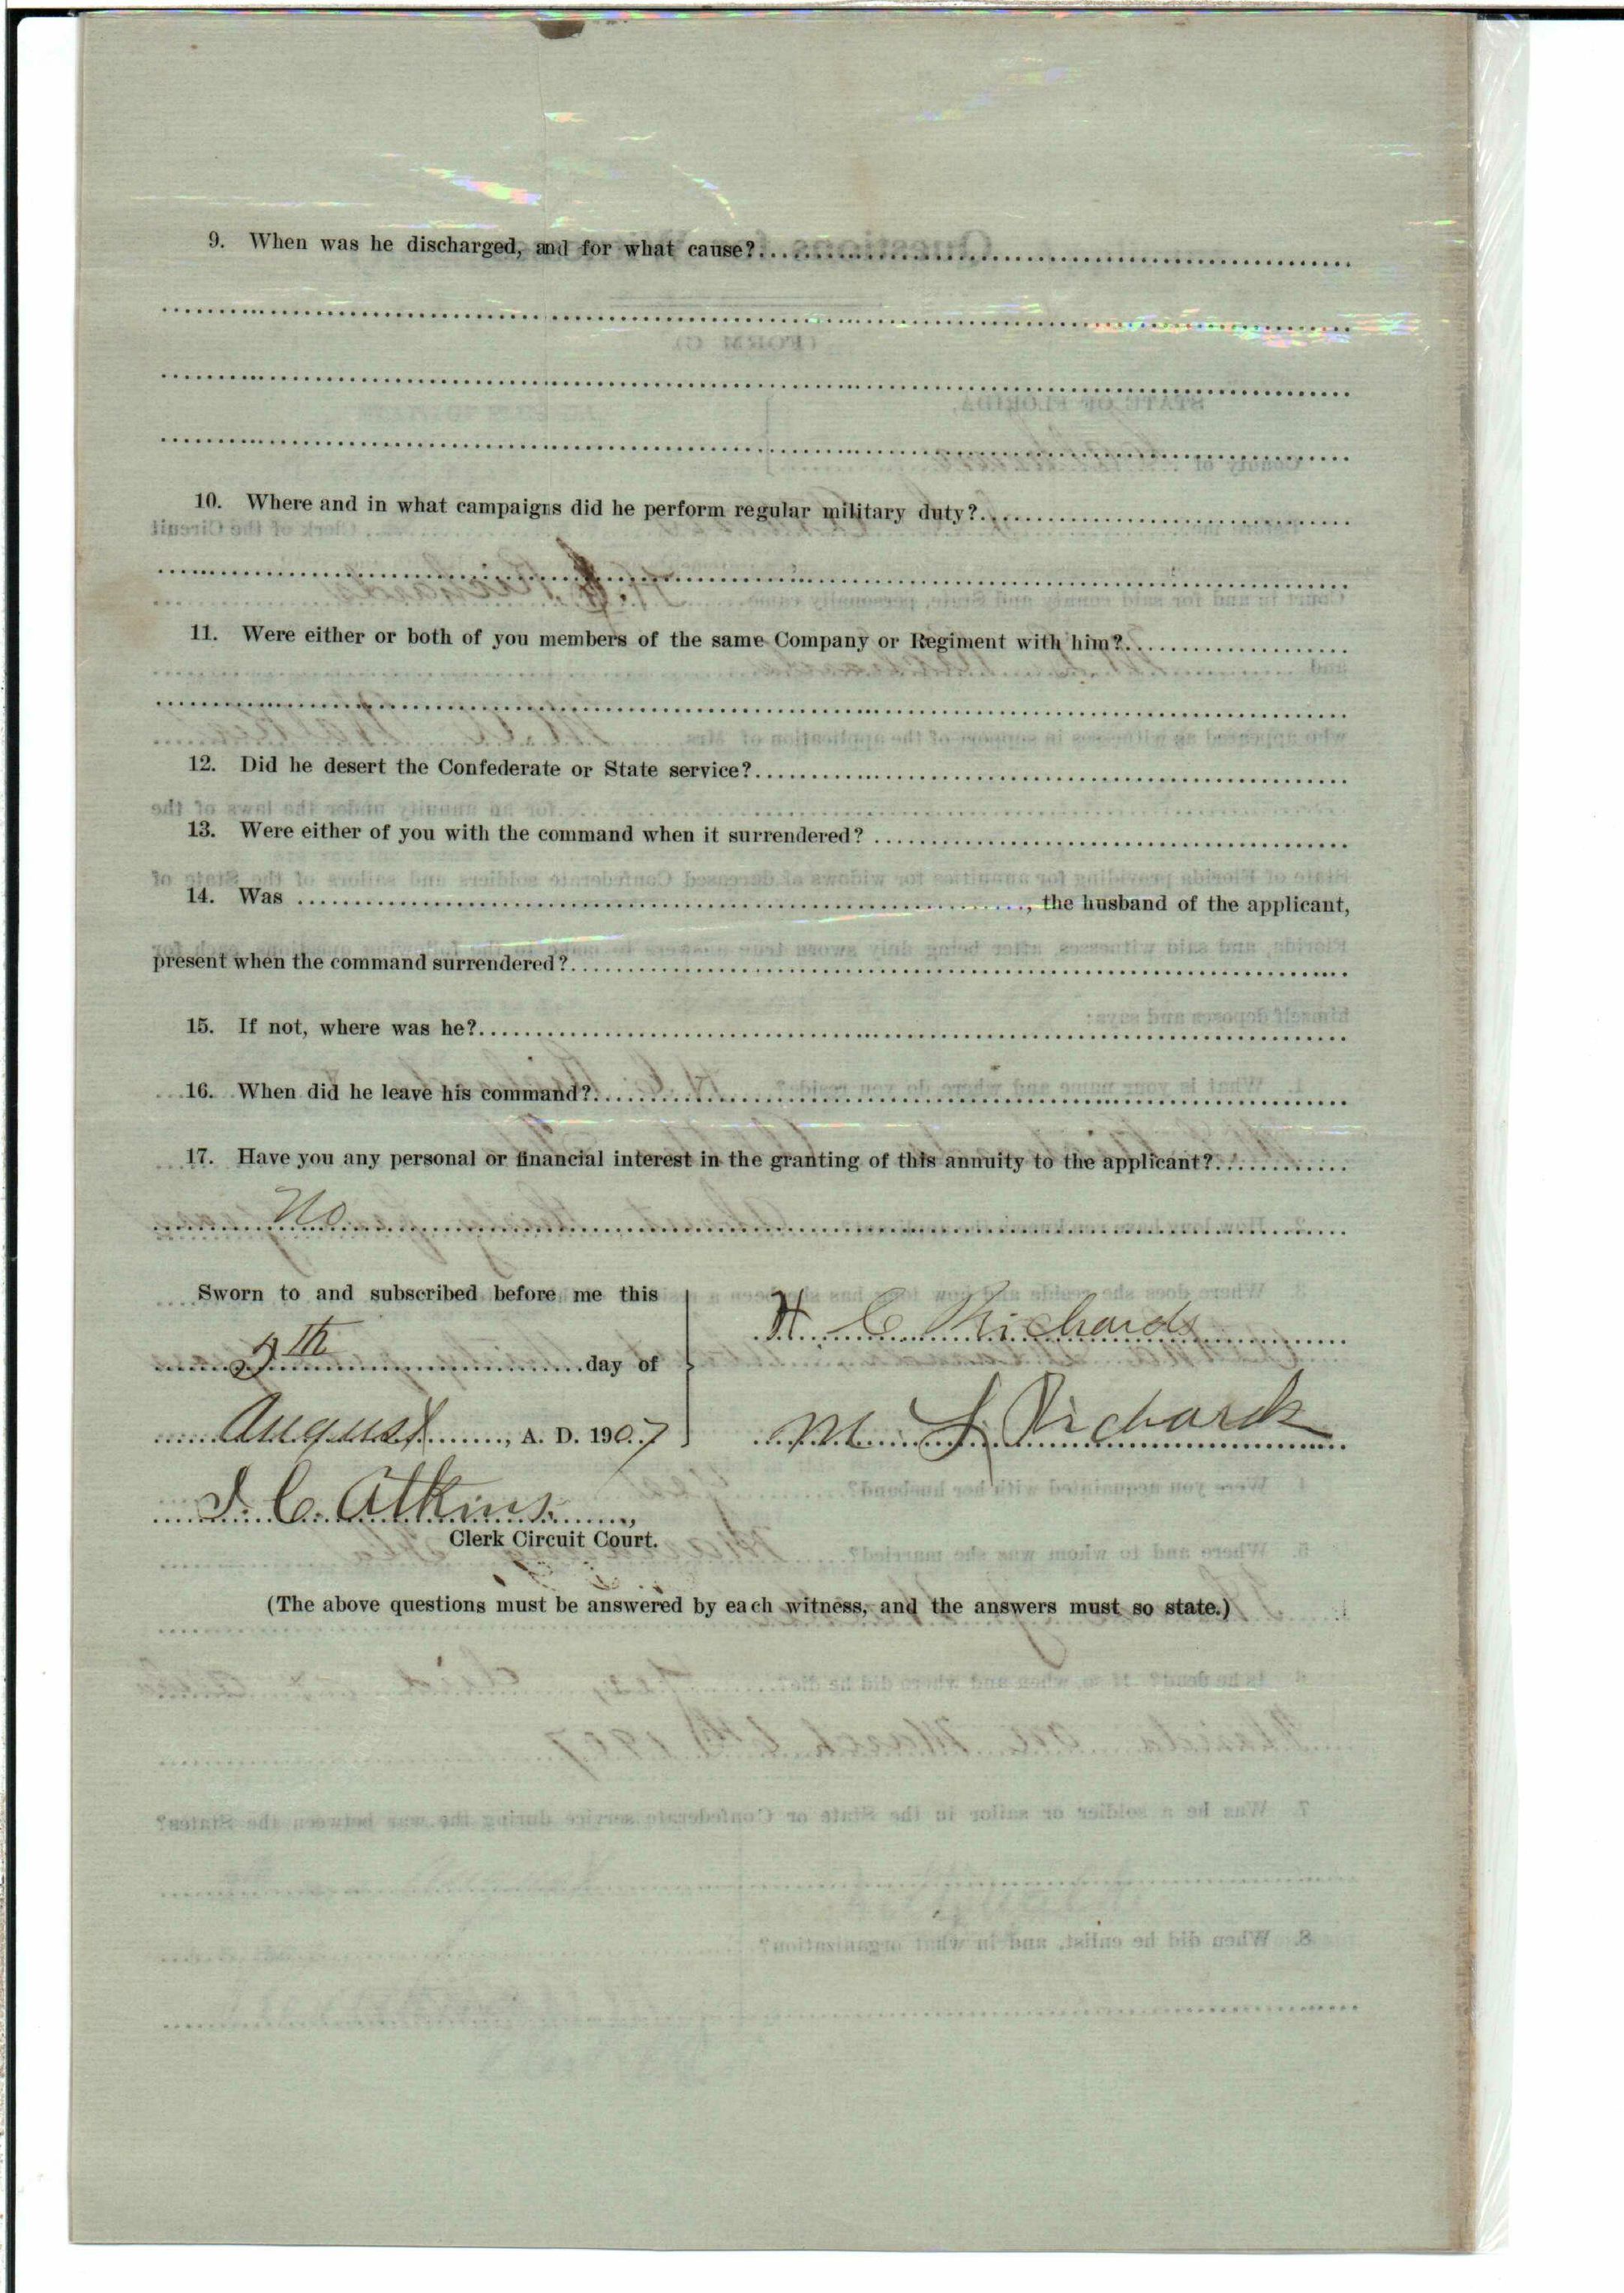 9. When was he discharged, and for what cause?
10. Where and in what campaigns did he perform regular military duty?
11. Were either or both of you members of the same Company or Regiment with him?
12. Did he desert the Confederate or State service?
13. Were either of you with the command when it surrendered?
14. Was , the husband of the applicant,
present when the command surrendered?
15. If not, where was he?
16. When did he leave his command?
17. Have you any personal or financial interest in the granting of this annuity to the applicant?
No
Sworn to and subscribed before me this
H. C Richards
day of
August, A. D. 1907
M L Richards
J. C. Atkins
Clerk Circuit Court.
(The above questions must be answered by each witness, and the answers must so state.)